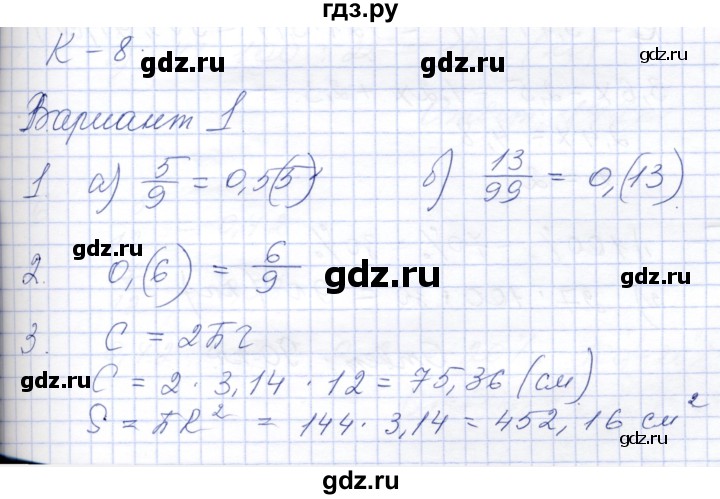 гдз.ру
К – 8.
Вариант 1
1. а) 5/9 = 0,5(5) б) 13/99 = 0,(13)
2. 0,(6) = 6/9
3. C = 2πr
C = 2 · 3,14 · 12 = 75,36 (см)
S = πR² = 144 · 3,14 = 452,16 см²
gdz.ru
gdz.ru
gdz.ru
gdz.ru
gdz.ru
gdz.ru
gdz.ru
gdz.ru
gdz.ru